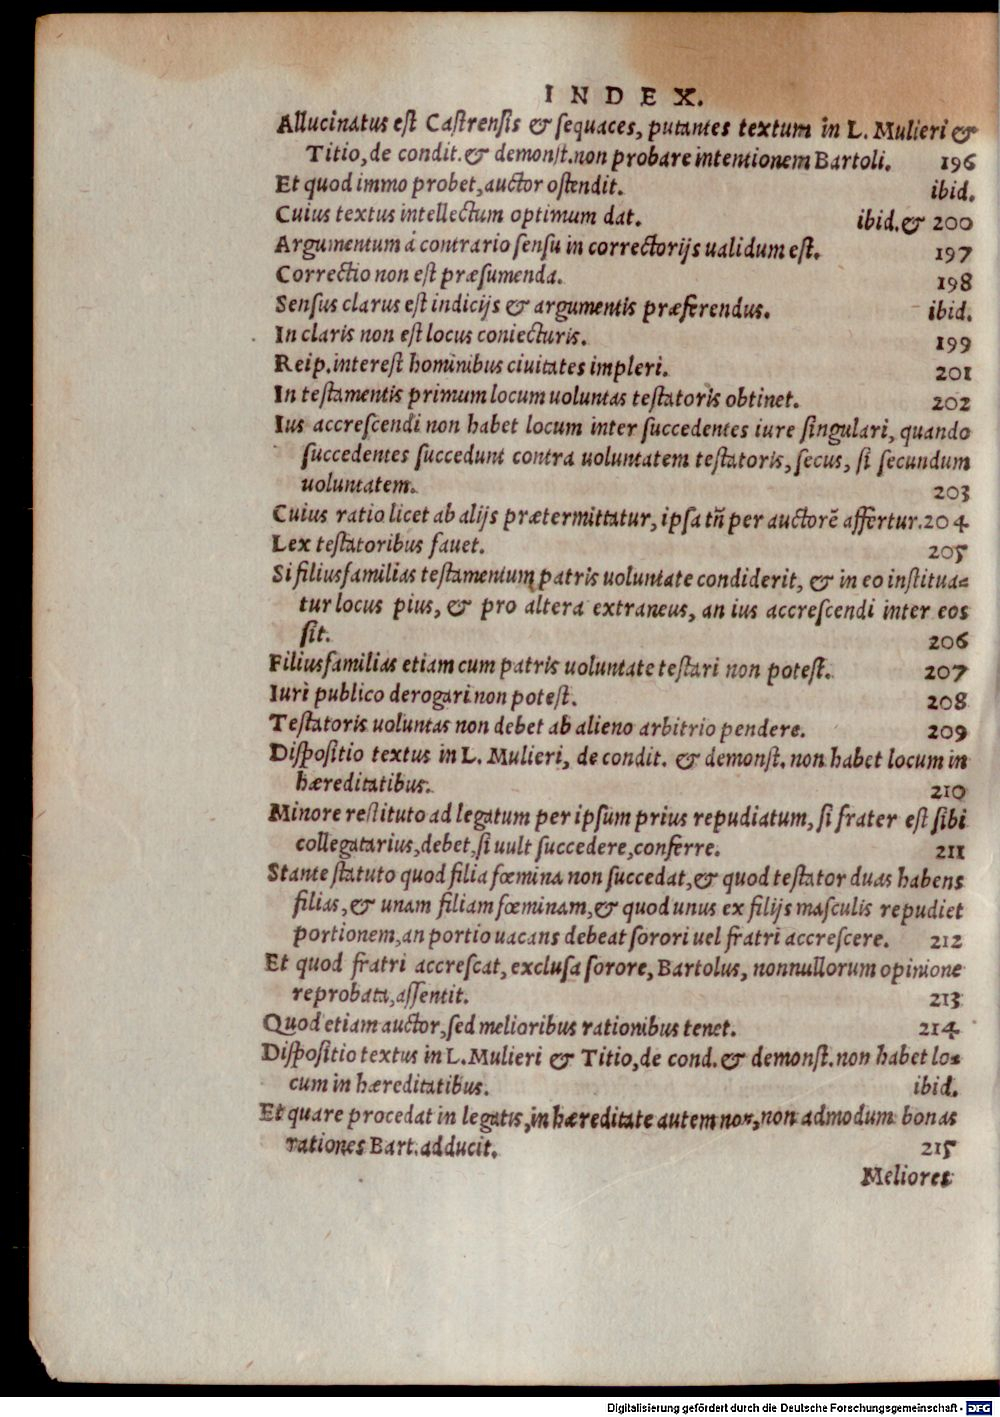 INDEX.
Allucinatus est Castrensis & sequaces, putantes textum in L. Mulieri &
Titio, de condit. & demonst. non probare intentionem Bartoli. 196
Et quod immo probet, auctor ostendit. ibid.
Cuius textus intellectum optimum dat. ibid. & 200
Argumentum á contrario sensu in correctorijs ualidum est. 197
Correctio non est præsumenda. 198
Sensus clarus est indicijs & argumentis præferendus. ibid.
In claris non est locus coniecturis. 199
Reip. interest hominibus ciuitates impleri. 201
In testamentis primum locum uoluntas testatoris obtinet. 202
Ius accrescendi non habet locum inter succedentes iure singulari, quando
succedentes succedunt contra uoluntatem testatoris, secus, si secundum
uoluntatem. 203
Cuius ratio licet ab alijs prætermittatur, ipsa tñ per auctorẽ affertur. 204
Lex testatoribus fauet. 205
Si filiusfamilias testamentum patris uoluntate condiderit, & in eo institua=
tur locus pius, & pro altera extraneus, an ius accrescendi inter eos
sit. 206
Filiusfamilias etiam cum patris uoluntate testari non potest. 207
Iuri publico derogari non potest. 208
Testatoris uoluntas non debet ab alieno arbitrio pendere. 209
Dispositio textus in L. Mulieri, de condit. & demonst. non habet locum in
hæreditatibus. 210
Minore restituto ad legatum per ipsum prius repudiatum, si frater est sibi
collegatarius, debet, si uult succedere, conferre. 211
Stante statuto quod filia fœmina non succedat, & quod testator duas habens
filias, & unam filiam fœminam, & quod unus ex filijs masculis repudiet
portionem, an portio uacans debeat sorori uel fratri accrescere. 212
Et quod fratri accrescat, exclusa sorore, Bartolus, nonnullorum opinione
reprobata, assentit. 213
Quod etiam auctor, sed melioribus rationibus tenet. 214
Dispositio textus in L. Mulieri & Titio, de cond. & demonst. non habet lo=
cum in hæreditatibus. ibid.
Et quare procedat in legatis, in hæreditate autem non, non admodum bonas
rationes Bart. adducit. 215
Meliores
Digitalisierung gefördert durch die Deutsche Forschungsgemeinschaft - DFG